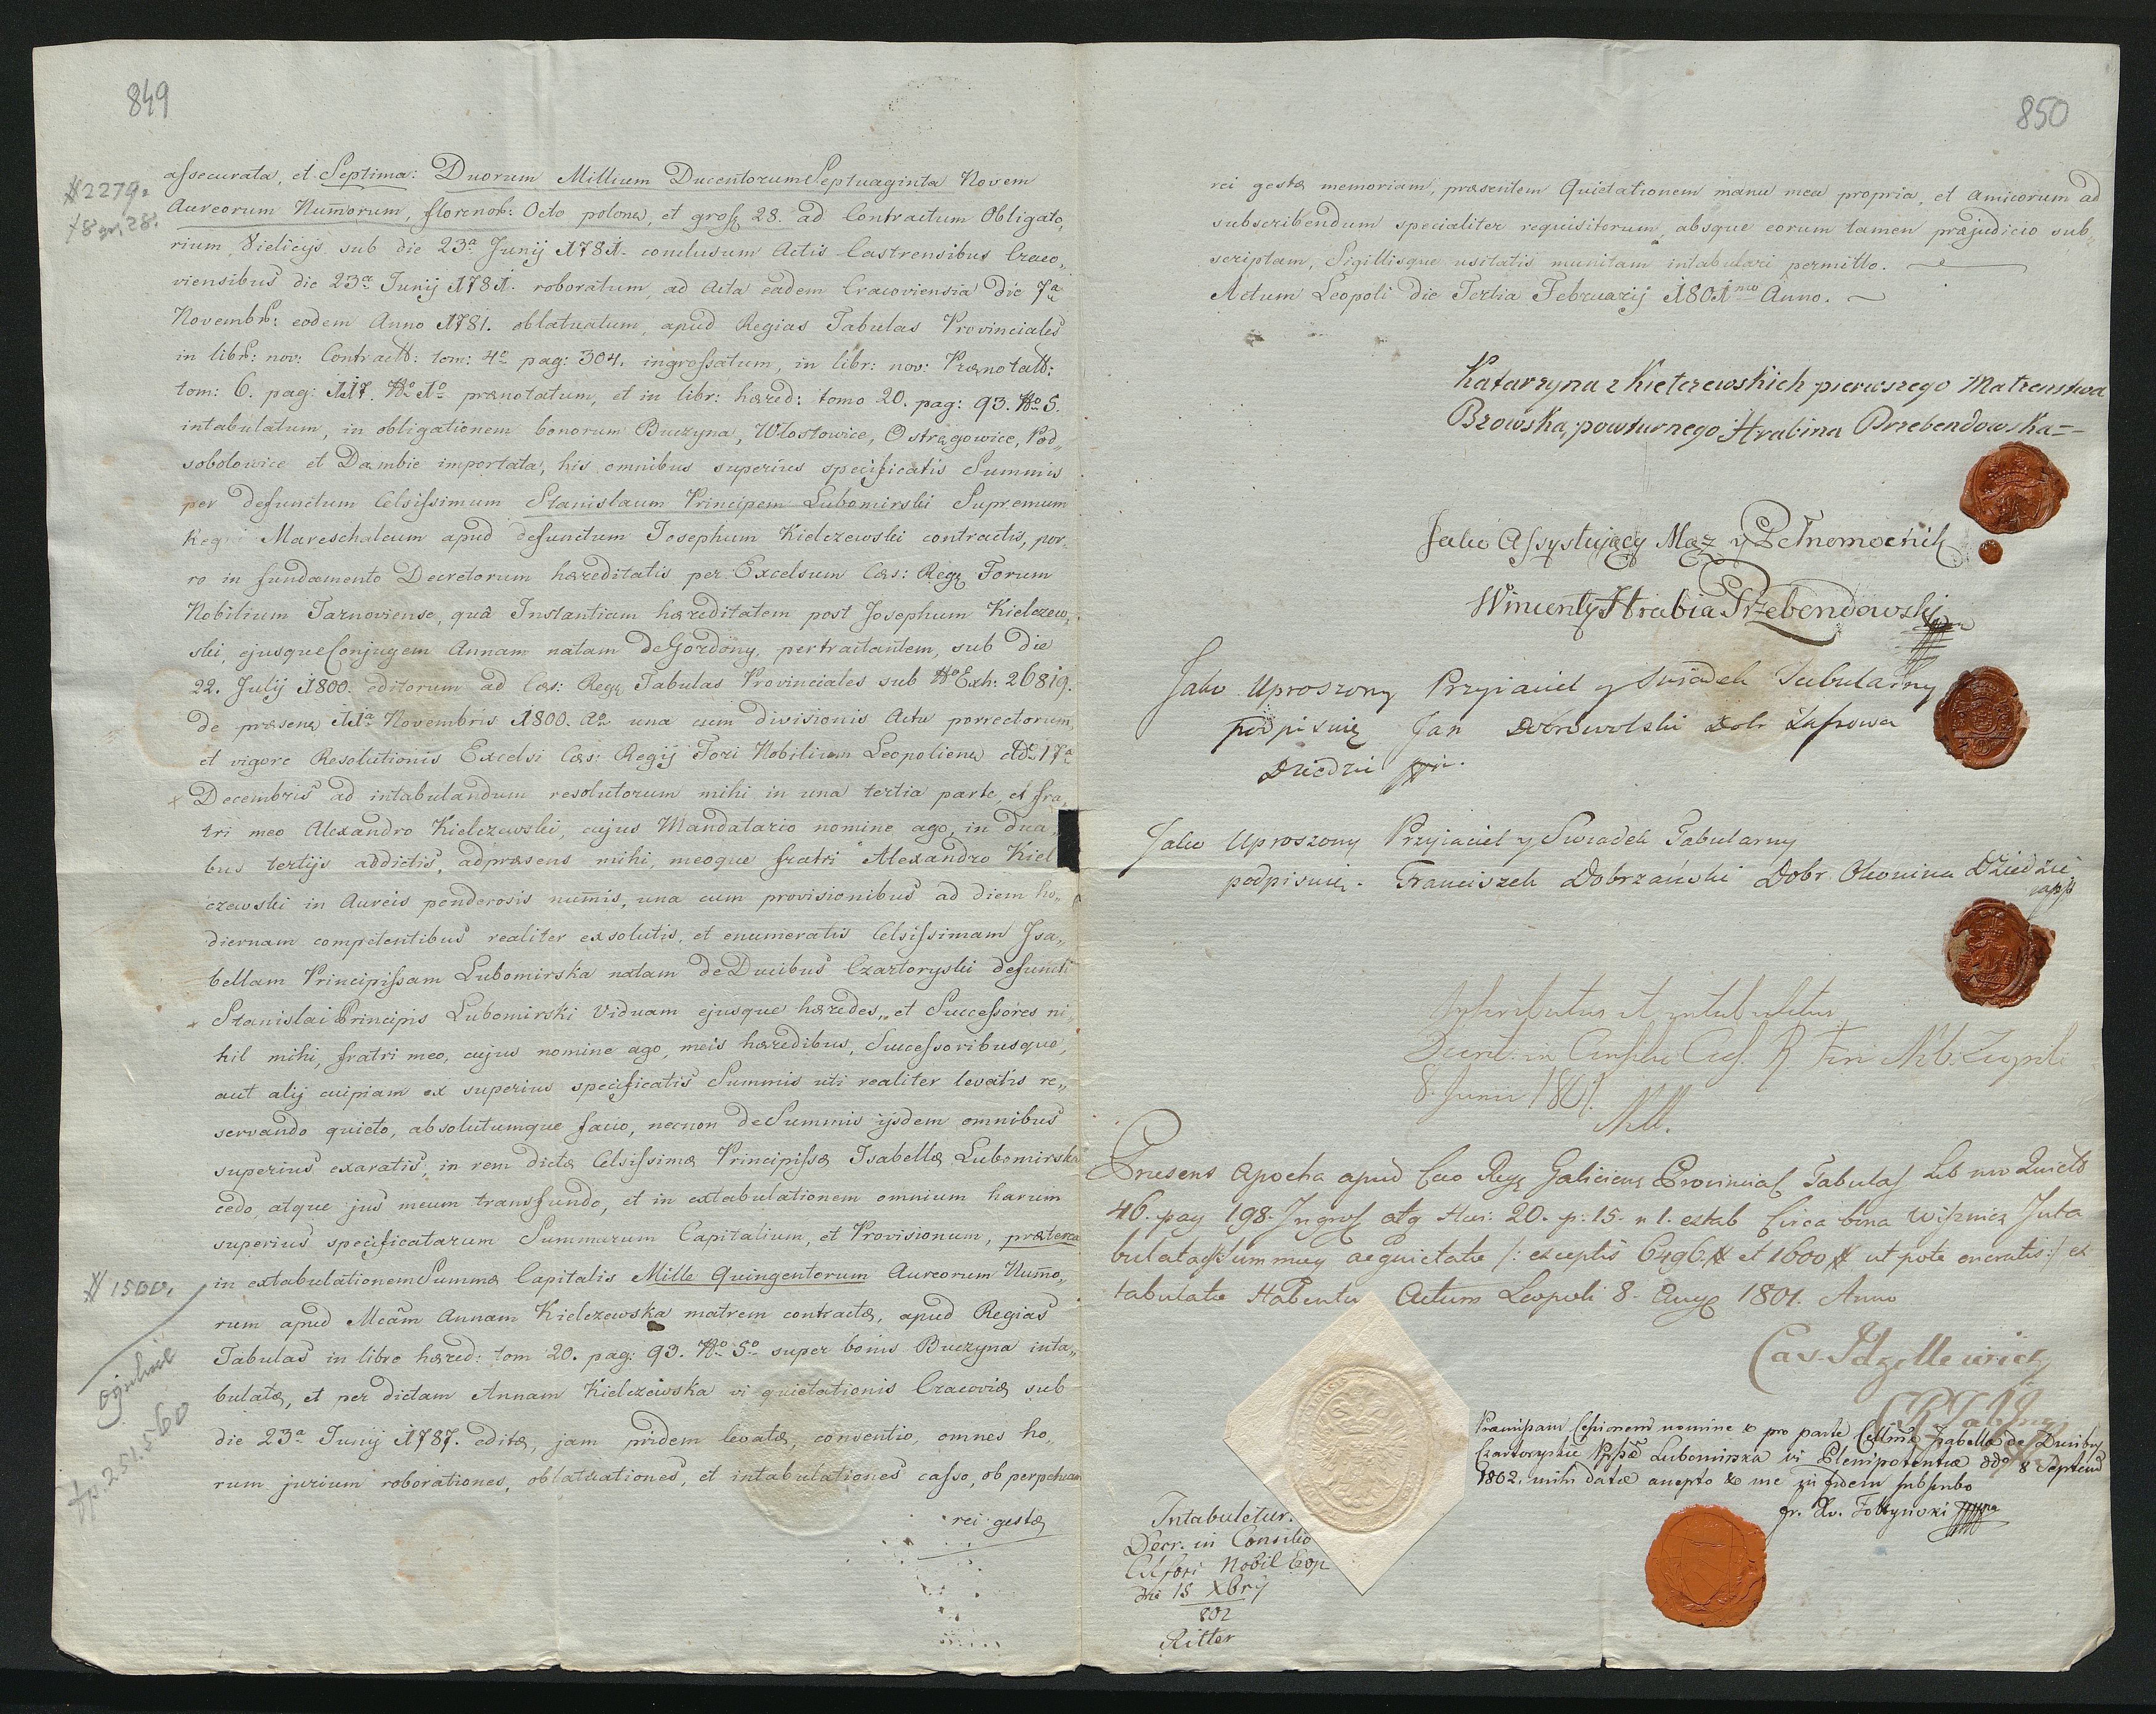 849
# 2279.
f 8 gr. 28.
assecurata, et Septima: Duorum Millium Ducentorum Septuaginta Novem
Aureorum Nummorum, florenor: Octo polonq, et gross 28. ad Contractum Obligato,,
rium, Vieliciis sub die 23a Junij 1781. conclusum Actis Castrensibus Craco,,
viensibus die 23a Junij 1781. roboratum, ad Acta eadem Cracoviensia die 7a
Novembr: eodem Anno 1781. oblatuatum, apud Regias Tabulas Provinciales
in libr: nov: Contractt: tom: 4o pag: 304. ingrossatum, in libr: nov: Prænotatt:
tom: 6. pag: 117. No 1o prænotatum, et in libr: hæred: tomo 20. pag: 93. No 5.
intabulatum, in obligationem bonorum Buczyna, Włostowice, Ostrągowice, Pod,,
sobolowice et Dambie importata, his omnibus superius specificatis Summis
per defunctum Celsissimum Stanislaum Principem Lubomirski Supremum
Regni Mareschalcum apud defunctum Josephum Kielczewski contractis, por,,
ro in fundamento Decretorum hæreditatis per Excelsum Cæs: Regq Forum
Nobilium Tarnoviense, quâ Instantiam hæreditatem post Josephum Kielczew,,
ski, ejusque Conjugem Annam natam de Gordony, pertractantem, sub die
22. Julij 1800. editorum ad Cæs: Regq Tabulas Provinciales sub No Exh: 26819.
de præsenq 11a Novembris 1800. Ao una cum divisionis Actu porrectorum,
et vigore Resolutionis Excelsi Cæs: Regij Fori Nobilium Leopolienq ddo 17a
Decembris ad intabulandum resolutorum mihi in una tertia parte, et fra,,
tri meo Alexandro Kielczewski, cujus Mandatario nomine ago, in dua,,
bus tertijs addictis, adpræsens mihi, meoque fratri Alexandro Kiel
czewski in Aureis ponderosis num̄is, una cum provisionibus ad diem ho,,
diernam competentibus realiter exsolutis, et enumeratis Celsissimam Isa,,
bellam Principissam Lubomirska natam de Ducibus Czartoryski defuncti
Stanislai Principis Lubomirski Viduam ejusque hæredes,, et Successores ni,,
hil mihi, fratri meo, cujus nomine ago, meis hæredibus, Successoribusque,
aut alij cuipiam ex superius specificatis Summis uti realiter levatis re,,
servando quieto, absolutumque facio, necnon de Summis ijsdem omnibus
superius exaratis, in rem dictæ Celsissimæ Principissæ Isabellæ Lubomirska
cedo, atque jus meum transfundo, et in extabulationem omnium harum
superius specificatarum Summarum Capitalium, et Provisionum, præterea
# 1500.
in extabulationem Summæ Capitalis Mille Quingentorum Aureorum Num̄o,,
rum apud Meam Annam Kielczewska matrem contractæ, apud Regias
Tabulas in libro hæred: tom 20. pag: 93. No 5o super bonis Buczyna inta,,
bulatæ, et per dictam Annam Kielczewska vi quietationis Cracoviæ sub
die 23a Junij 1787. editæ, jam pridem levatæ, consentio, omnes ho,,
rum jurium roborationes, oblatuationes, et intabulationes casso, ob perpetuam
ogulnie
fp. 251.560
rei gestæ
850
rei gestæ memoriam, præsentem Quietationem manu mea propria, et Amicorum ad
subscribendum specialiter requisitorum, absque eorum tamen præjudicio sub,,
scriptam, Sigillisque usitatis munitam intabulari permitto.
Actum Leopoli die Tertia Februarij 1801mo Anno.
Katarzyna z Kielczewskich pierwszego Małzenstwa
Bzowska, powturnego Hrabina Przebendowska
Jako Assystujący Mąz y Pełnomocnik
Wincenty Hrabia Przebendowski
Jako Uproszony Przyiaciel y Swiadek Tabularny
podpisuię Jan Dobrowolski Dobr Łapszowa
Dziedzic
Jako Uproszony Przyiaciel y Swiadek Tabularny
podpisuię. Franciszek Dobrzański Dobr Okonina Dziedzic
Inscribatur et intabuletur
8. Junii 1801.
Præsens Apocha apud Cæo Regq Galicienq Provincial Tabulas Lib nov Quiett
46. pag 198. Ingros atq Her: 20. p. 15. n 1. extab Circa bona Wisznicz Inta
bulatas Summas aequietatæ /: exceptis 6496 # et 1600 # ut pote oneratis :/ ex
tabulatæ Habentur Actum Leopoli 8. Augq 1801. Anno
Præmissam Cessionem nomine & pro parte Celsmæ Isabellæ de Ducibus
Czartoryskie Lubomirska vi Plenipotentiæ ddo 8 Septem
1802. mihi datæ accepto & me in fidem subscribo
Intabuletur.
Decr. in Consilio
fori Nobil Leop
die 15 Xbris
802
Ritter